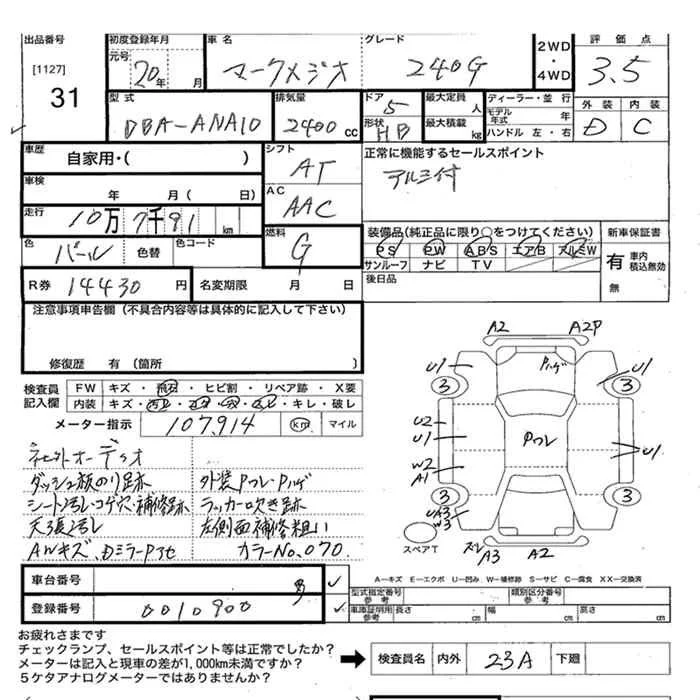 出品番号 初度登録年月 車名 グレード 2WD・4WD 評価点
[1127] 元号 20年 月 マークXジオ 240G 3.5
31 型式 排気量 ドア 5 最大定員 人 ディーラー・並行 外装 内装
DBA-ANA10 2400cc 形状 HB 最大積載 kg モデル年式 年 D C
ハンドル 左・右
車歴 自家用・( ) シフト AT 正常に機能するセールスポイント
アルミ付
車検 年 月 (日) AC AAC
走行 10万7千91 km 燃料 G 装備品(純正品に限り○をつけてください) 新車保証書
色 パール 色替 色コード PS PW ABS エアB アルミW 有 車内積込無効
サンルーフ ナビ TV
R券 14430円 名変期限 月 日 後日品 無
注意事項車告欄 (不具合内容等は具体的に記入して下さい)
修復歴 有 (箇所 )
検査員記入欄 FW キズ・飛石・ヒビ割・リペア跡・X要
内装 キレ・破レ
メーター指示 107,914 km マイル
ダッシュ板のり跡 外装Pフレ・Pハゲ
シート汚レ・コゲ穴・補修跡 ラッカー吹き跡
天張汚レ 左側面補修粗い
AWキズ、 カラーNo,070
A2 A2P
U1 Pハゲ U1
3 3
U2
U1 Pフレ U1
W2
A1
3 3
UA3
W3
スペアT A3 A2
A―キズ E―エクボ U―凹み W―補修跡 S―サビ C―腐食 XX―交換済
車台番号 型式指定番号 参考 類別区分番号 参考
登録番号 0010900 車庫証明用 参考 長さ cm 幅 cm 高さ cm
お疲れさまです
チェックランプ、セールスポイント等は正常でしたか?
メーターは記入と現車の差が1,000km未満ですか? 検査員名 内外 23A 下廻
5ケタアナログメーターではありませんか?